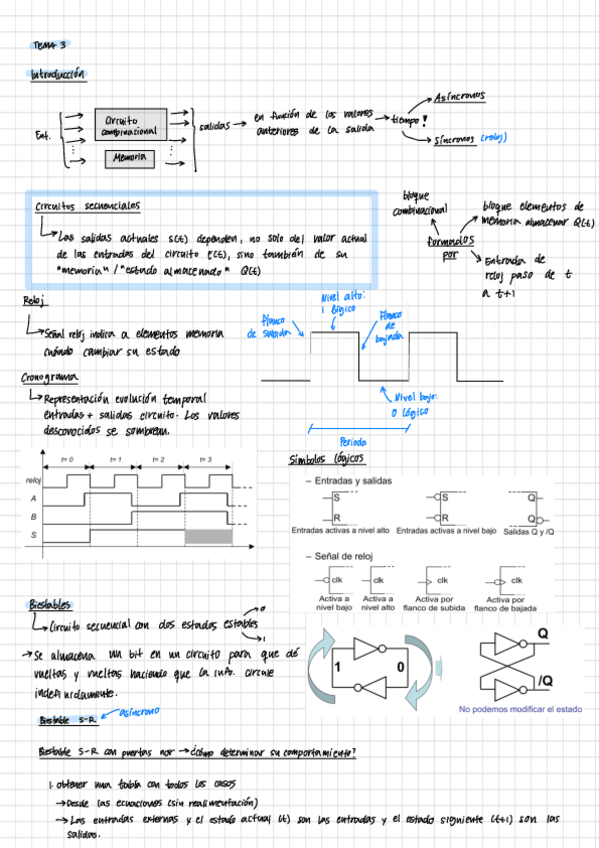 TEMA 3
Introducción
Ent.
Circuito
combinacional
Memoria
salidas → en función de los valores
anteriores de la salida → tiempo!
Asíncronos
Síncronos (reloj)
Circuitos secuenciales
↳ Las salidas actuales S(t) dependen, no solo del valor actual
de las entradas del circuito E(t), sino también de su
"memoria" / "estado almacenado" Q(t)
bloque
combinacional
formados
por
bloque elementos de
memoria almacenar Q(t)
Entrada de
reloj paso de t
a t+1
Reloj
↳ Señal reloj indica a elementos memoria
cuándo cambiar su estado
Flanco
de subida
Nivel alto:
1 lógico
Flanco
de
bajada
Nivel bajo:
0 lógico
Periodo
Cronograma
↳ Representación evolución temporal
entradas + salidas circuito. Los valores
desconocidos se sombrean.
t= 0 t= 1 t= 2 t= 3
reloj
A
B
S
Símbolos lógicos
– Entradas y salidas
S S Q
R R Q
Entradas activas a nivel alto Entradas activas a nivel bajo Salidas Q y /Q
– Señal de reloj
clk clk clk clk
Activa a nivel bajo Activa a nivel alto Activa por flanco de subida Activa por flanco de bajada
Biestables
↳ Circuito secuencial con dos estados estables
0
1
→ Se almacena un bit en un circuito para que dé
vueltas y vueltas haciendo que la info. circule
indefinidamente.
1 0
Q
/Q
No podemos modificar el estado
Biestable S-R
asíncrono
Biestable S-R con puertas nor → ¿cómo determinar su comportamiento?
1. obtener una tabla con todos los casos
→ Desde las ecuaciones (sin realimentación)
→ Las entradas externas y el estado actual (t) son las entradas y el estado siguiente (t+1) son las
salidas.